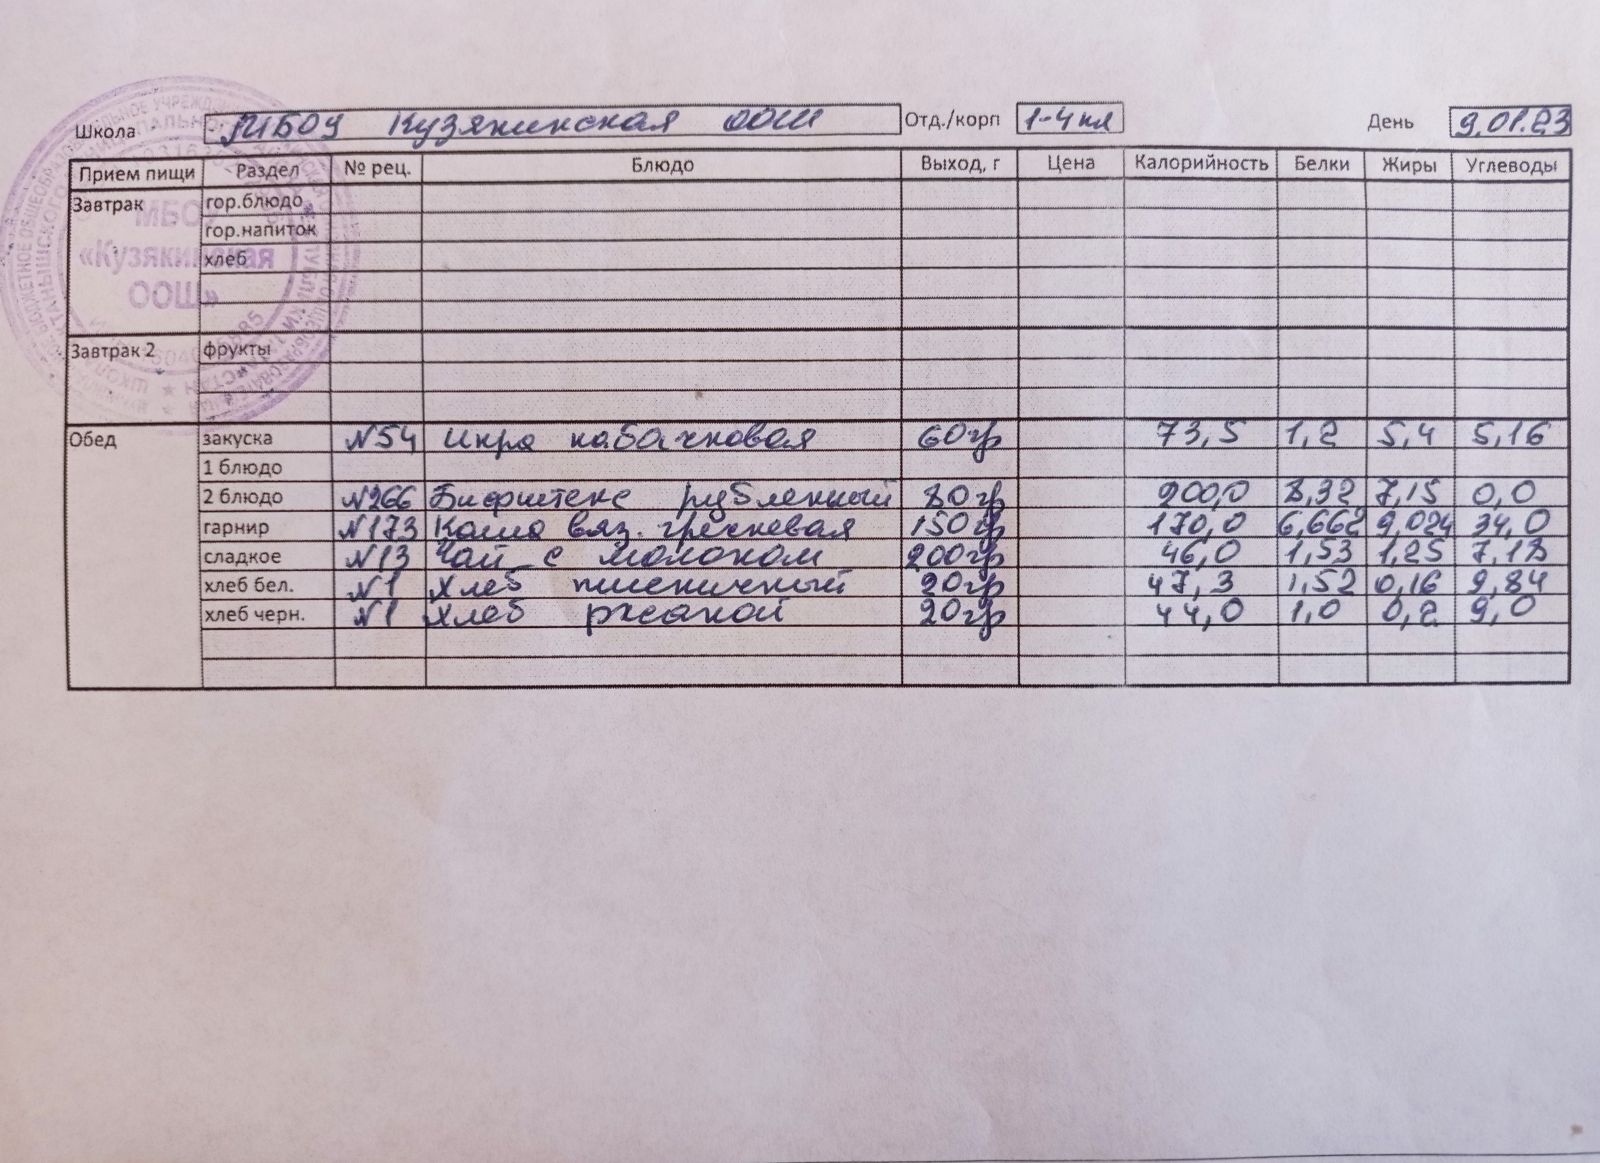 Школа МБОУ Кузякинская ООШ Отд./корп 1-4 кл День 9.01.23
Прием пищи Раздел № рец. Блюдо Выход, г Цена Калорийность Белки Жиры Углеводы
Завтрак гор.блюдо
гор.напиток
хлеб
Завтрак 2 фрукты
Обед закуска №54 Икра кабачковая 60гр 73,5 1,2 5,4 5,16
1 блюдо
2 блюдо №266 Бифштекс рубленный 80гр 200,0 8,32 7,15 0,0
гарнир №173 Каша вяз. гречневая 150гр 170,0 6,662 9,024 34,0
сладкое №13 Чай с молоком 200гр 46,0 1,53 1,25 7,18
хлеб бел. №1 Хлеб пшеничный 20гр 47,3 1,52 0,16 9,84
хлеб черн. №1 Хлеб ржаной 20гр 44,0 1,0 0,2 9,0
МБОУ
«Кузякинская
ООШ»